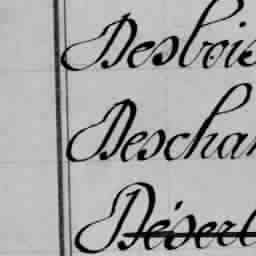 Desbois
Deschan
Désert